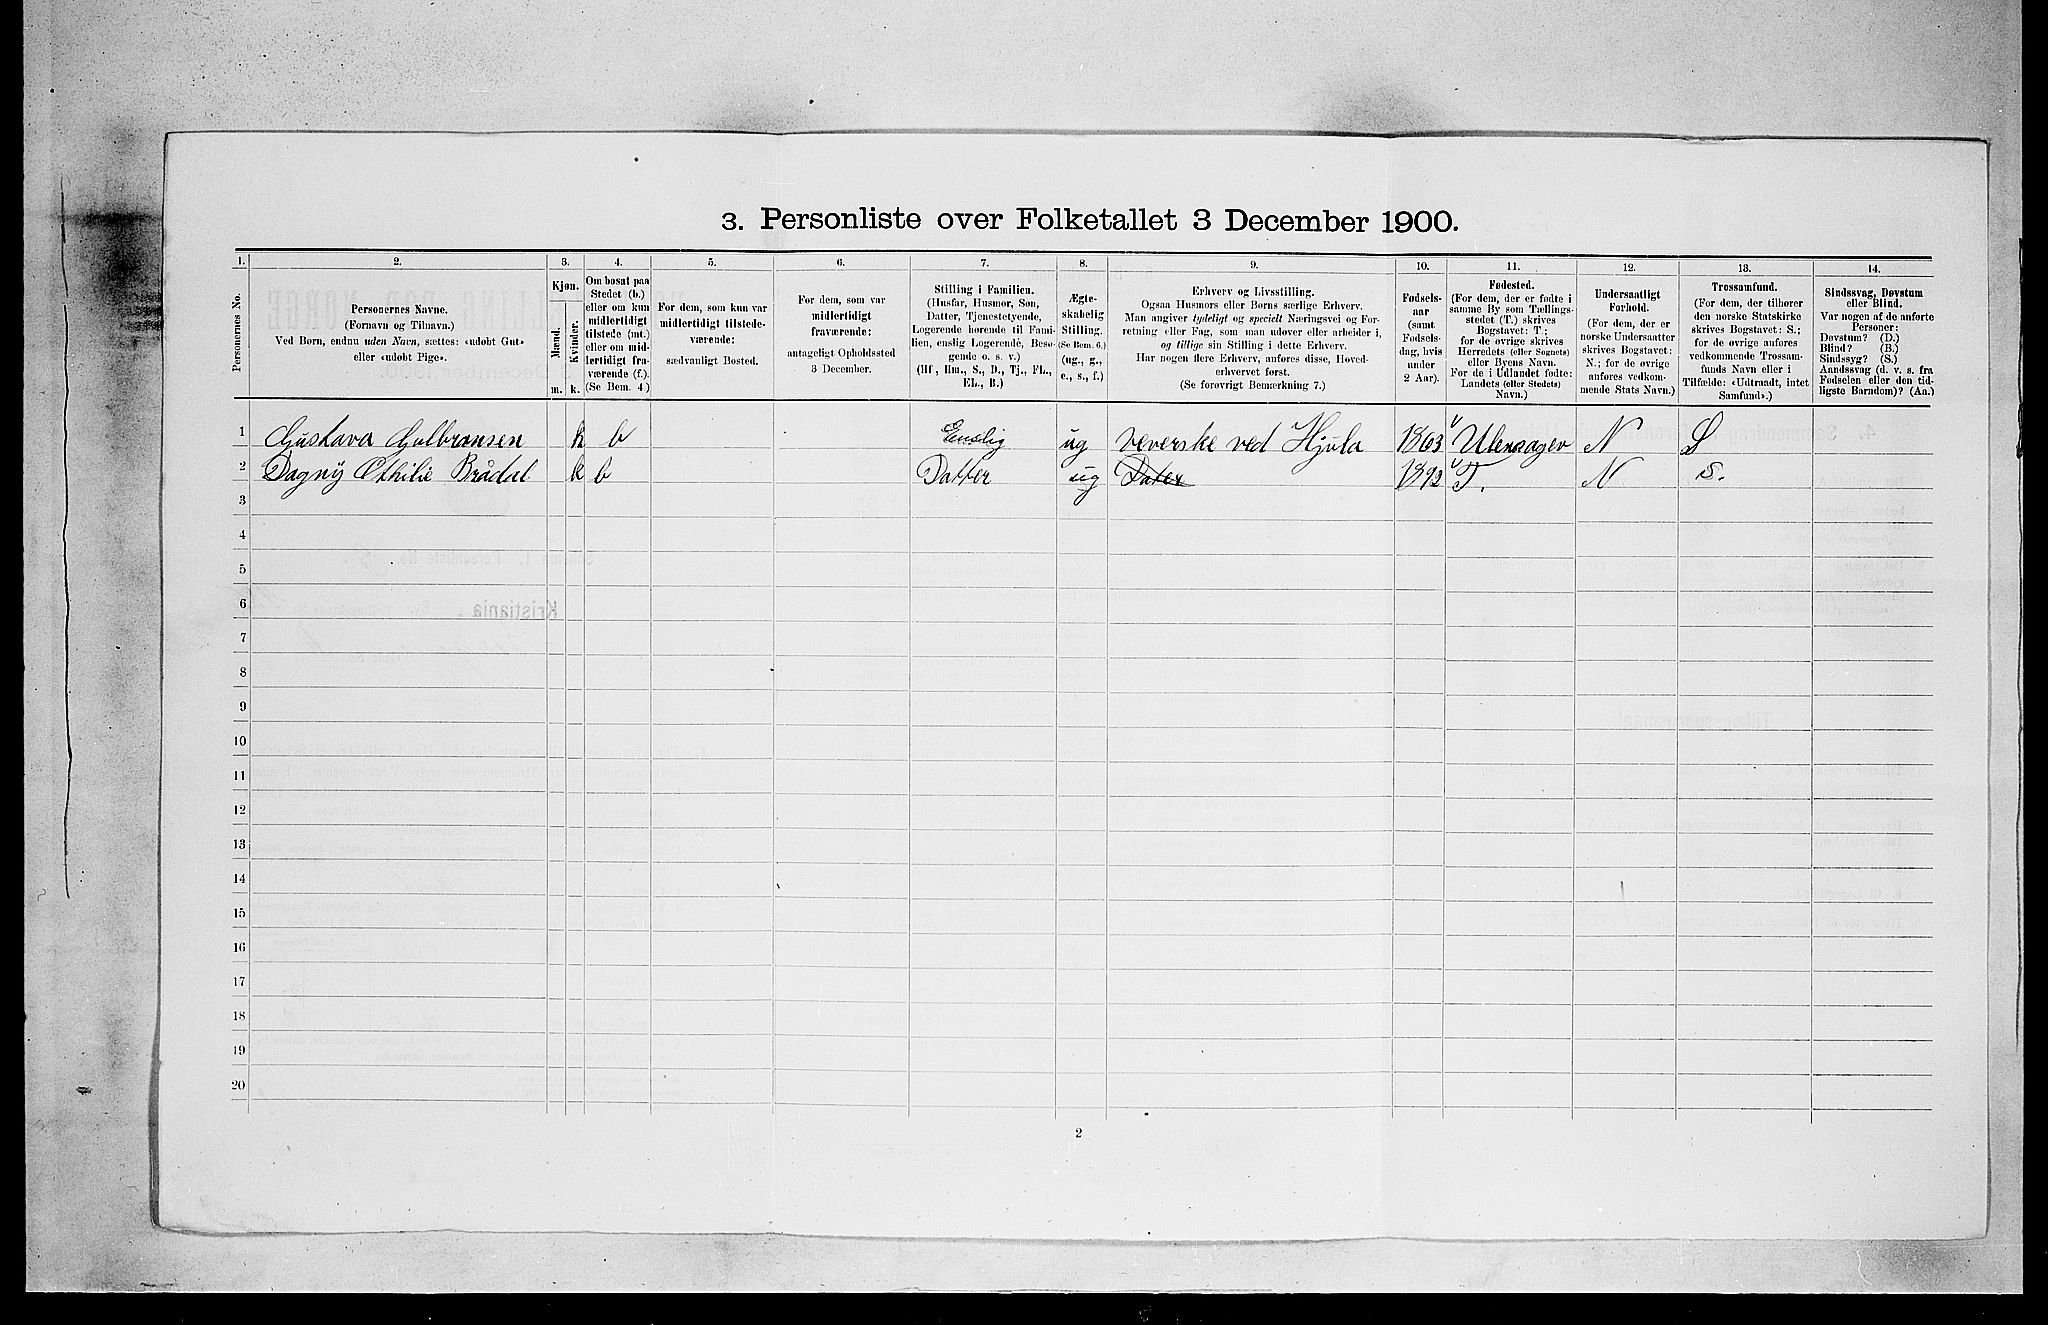 3. Personliste over Folketallet 3 December 1900.
1. 2. 3. 4. 5. 6. 7. 8. 9. 10. 11. 12. 13. 14.
Personernes No.
Personernes Navne.
(Fornavn og Tilnavn.)
Ved Børn, endnu uden Navn, sættes: «udøbt Gut»
eller «udøbt Pige».
Kjøn.
Mænd.
Kvinder.
m. k.
Om bosat paa
Stedet (b.)
eller om kun
midlertidigt
tilstede (mt.)
eller om mid-
lertidigt fra-
værende (f.).
(Se Bem. 4.)
For dem, som kun var
midlertidigt tilstede-
værende:
sædvanligt Bosted.
For dem, som var
midlertidigt
fraværende:
antageligt Opholdssted
3 December.
Stilling i Familien.
(Husfar, Husmor, Søn,
Datter, Tjenestetyende,
Logerende hørende til Fami-
lien, enslig Logerende, Besø-
gende o. s. v.)
(Hf, Hm., S., D., Tj., FL.,
EL., B.)
Ægte-
skabelig
Stilling.
(Se Bem. 6.)
(ug., g.,
e., s., f.)
Erhverv og Livsstilling.
Ogsaa Husmors eller Børns særlige Erhverv.
Man angiver tydeligt og specielt Næringsvei og For-
retning eller Fag, som man udøver eller arbeider i,
og tillige sin Stilling i dette Erhverv.
Har nogen flere Erhverv, anføres disse, Hoved-
erhvervet først.
(Se forøvrigt Bemærkning 7.)
Fødsels-
aar
(samt
Fødsels-
dag, hvis
under
2 Aar).
Fødested.
(For dem, der er fødte i
samme By som Tællings-
stedet (T.) skrives
Bogstavet: T.;
for de øvrige skrives
Herredets (eller Sognets)
eller Byens Navn.
For de i Udlandet fødte:
Landets (eller Stedets)
Navn.)
Undersaatligt
Forhold.
(For dem, der er
norske Undersaatter
skrives Bogstavet:
N.; for de øvrige
anføres vedkom-
mende Stats Navn.)
Trossamfund.
(For dem, der tilhører
den norske Statskirke
skrives Bogstavet: S.;
for de øvrige anføres
vedkommende Trossam-
funds Navn eller i
Tilfælde: «Udtraadt, intet
Samfund».)
Sindssvag, Døvstum
eller Blind.
Var nogen af de anførte
Personer:
Døvstum? (D.)
Blind? (B.)
Sindssyg? (S.)
Aandssvag (d. v. s. fra
Fødselen eller den tid-
ligste Barndom)? (Aa.)
1 Gustava Gulbransen k b Enslig ug væverske ved Hjula 1863 Ulensager N S
2 Dagny Othilie Brådal k b Datter ug Dater 1892 T. N S.
3
4
5
6
7
8
9
10
11
12
13
14
15
16
17
18
19
20
Kristiania
2